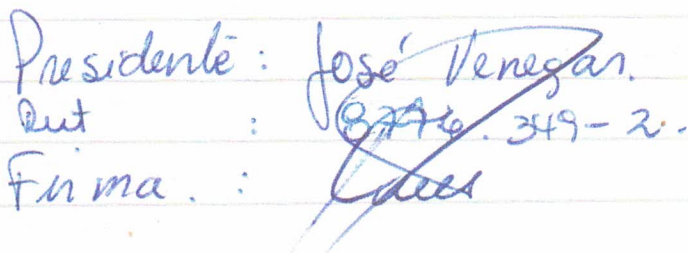 Presidente : José Venegas.
Rut : 8776.349-2.
Firma. :